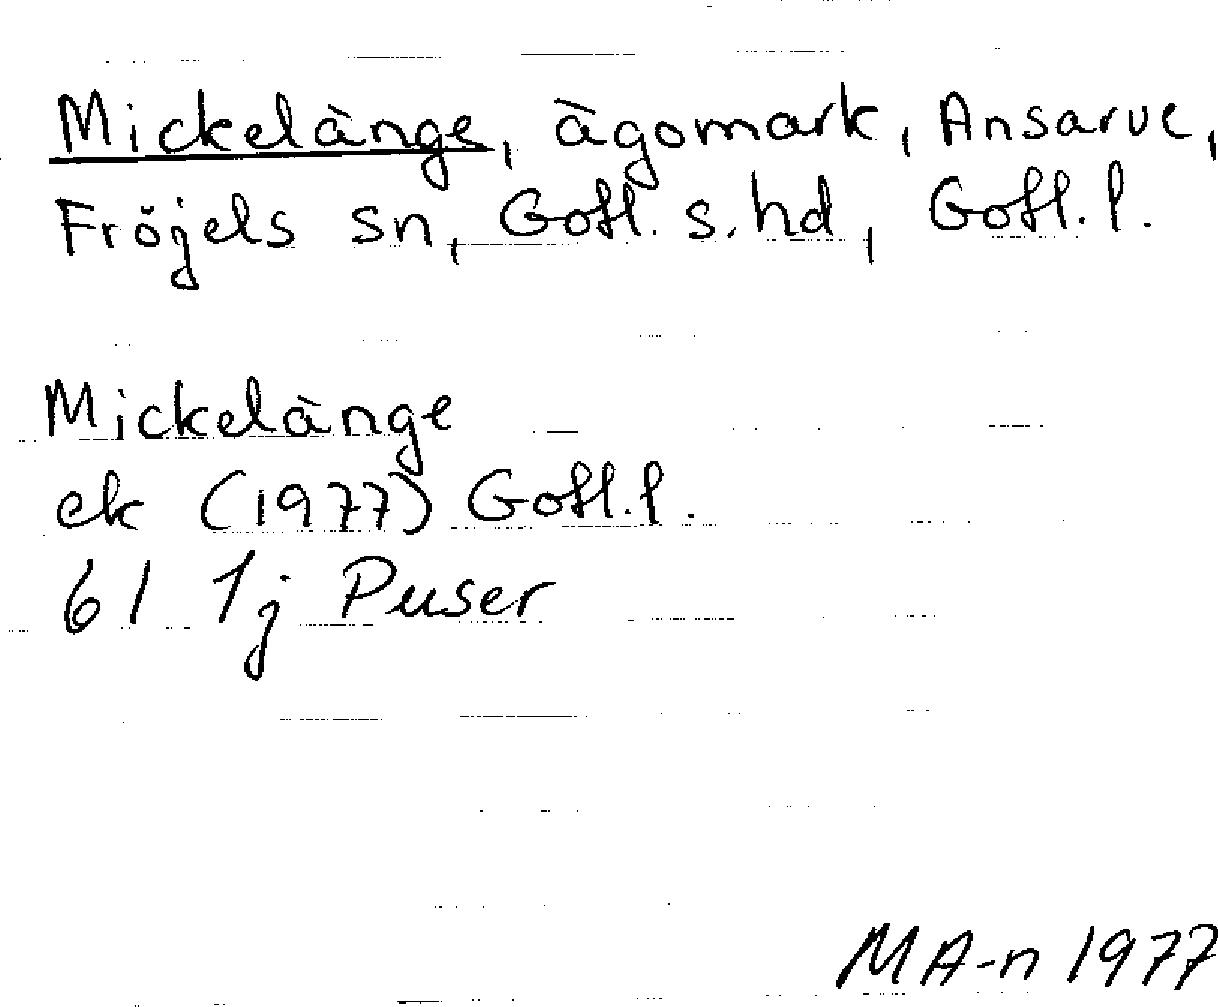 Mickelänge, ägomark, Ansarve,
Fröjels sn, Gotl. s. hd, Gotl. l.
Mickelänge
ek (1977) Gotl. l.
6I 1j Puser
MA-n 1977